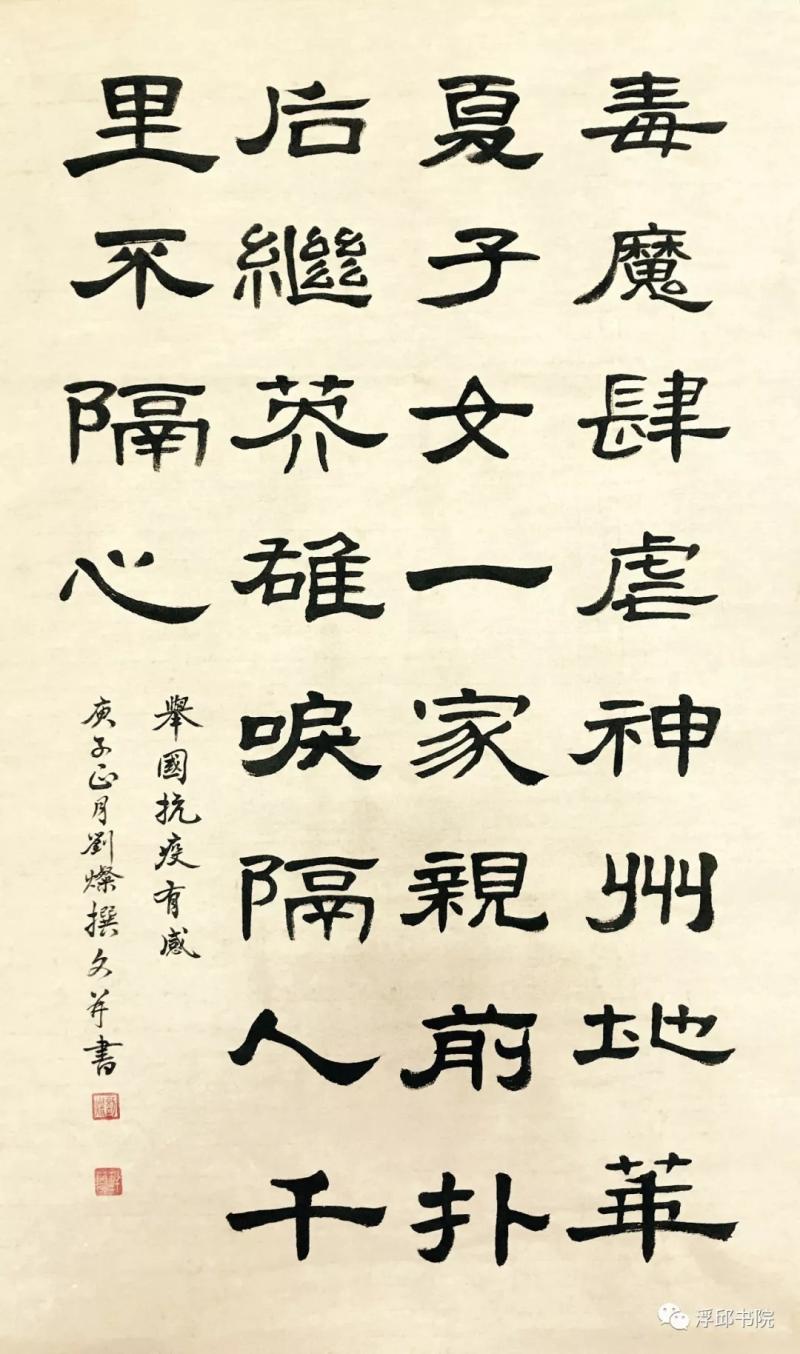 毒魔肆虐神州地華
夏子女一家親前扑
后繼英雄唳隔人千
里不隔心
舉國抗疫有感
庚子正月劉燦撰文并書
浮邱书院